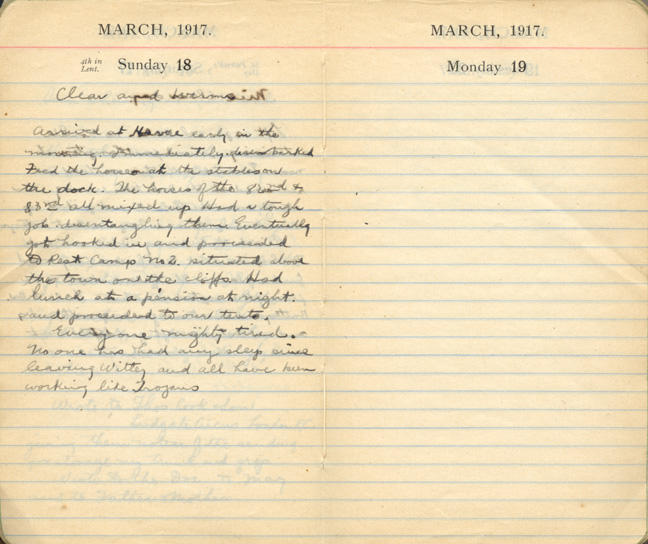 MARCH, 1917.
4th in Lent.
Sunday 18
Clear and
Arrived at Havre early in the
morning. Immediately disembarked
Fed the horses at the stables on
the dock. The horses of the 82nd &
83rd all mixed up Had a tough
job disentangling them. Eventually
got hooked in and proceeded
to Rest Camp No 2. situated above
the town on the cliffs. Had
lunch at a pension at night.
and proceeded to our tents.
Everyone mighty tired.
No one has had any sleep since
leaving Witley and all have been
working like Trojans
Wrote to Thos Cook
Ludgate Circus
MARCH, 1917.
Monday 19